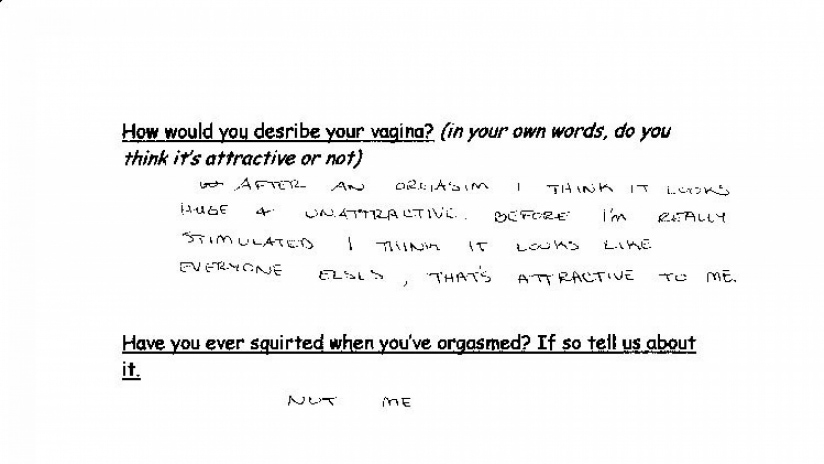 How would you desribe your vagina? (in your own words, do you
think it's attractive or not)
AFTER AN ORGIASIM I THINK IT LOOKS
HUGE & UNATTRACTIVE. BEFORE I'M REALLY
STIMULATED I THINK IT LOOKS LIKE
EVERYONE ELSES, THAT'S ATTRACTIVE TO ME.
Have you ever squirted when you've orgasmed? If so tell us about
it.
NOT ME